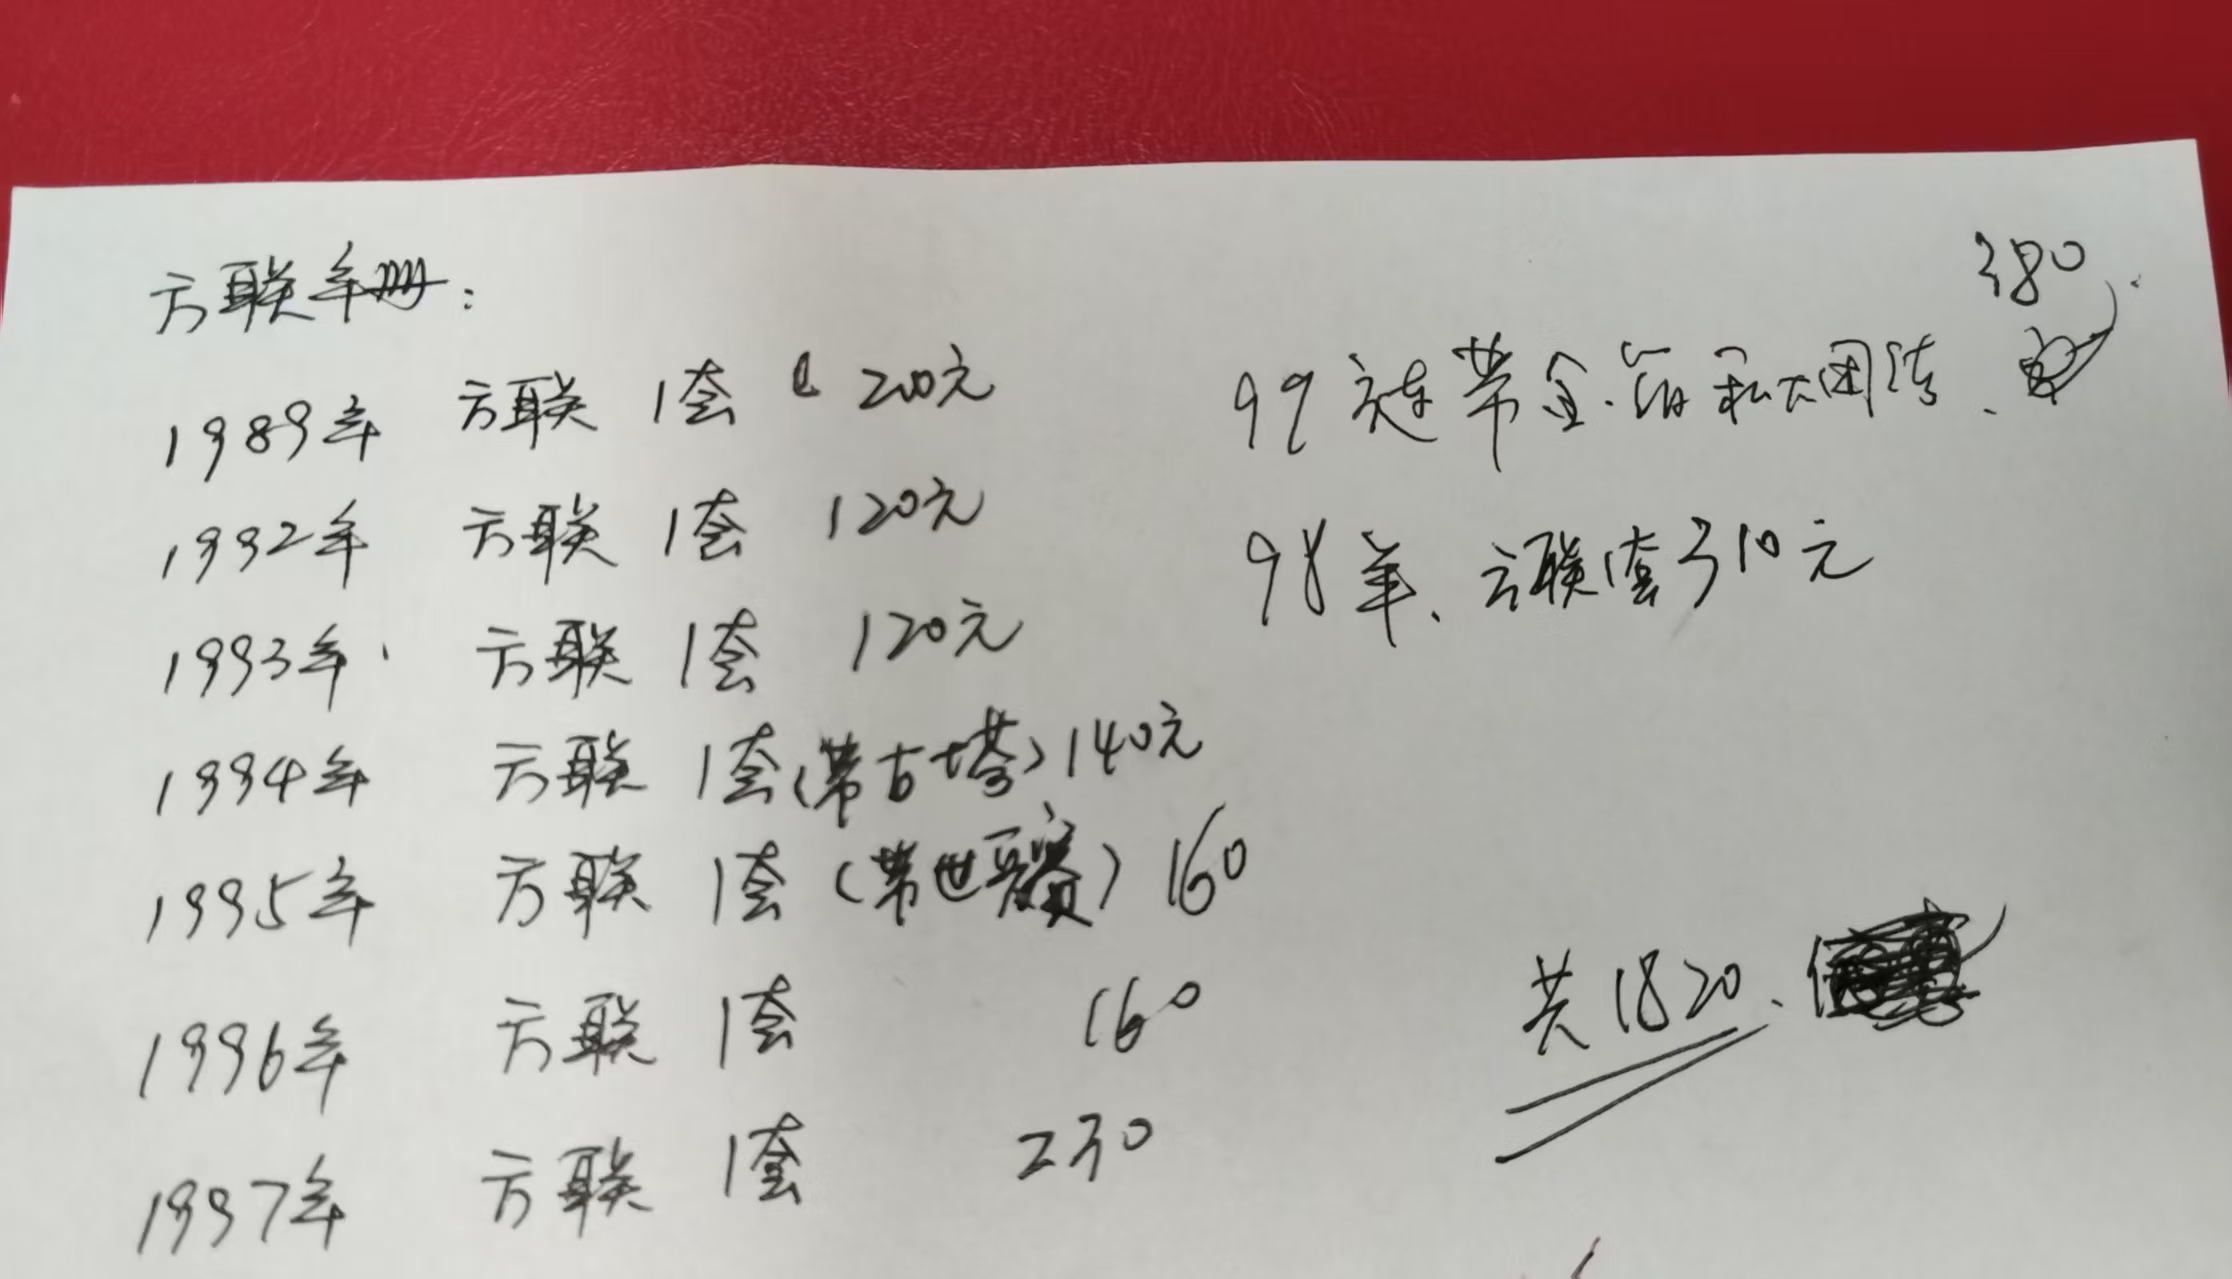 方联年册：
1989年 方联 1套 200元
1992年 方联 1套 120元
1993年 方联 1套 120元
1994年 方联 1套（带古塔）140元
1995年 方联 1套（带世妇会）160
1996年 方联 1套 160
1997年 方联 1套 230
380
99方连带金箔和大团结、
98年、方联1套310元
共1820、